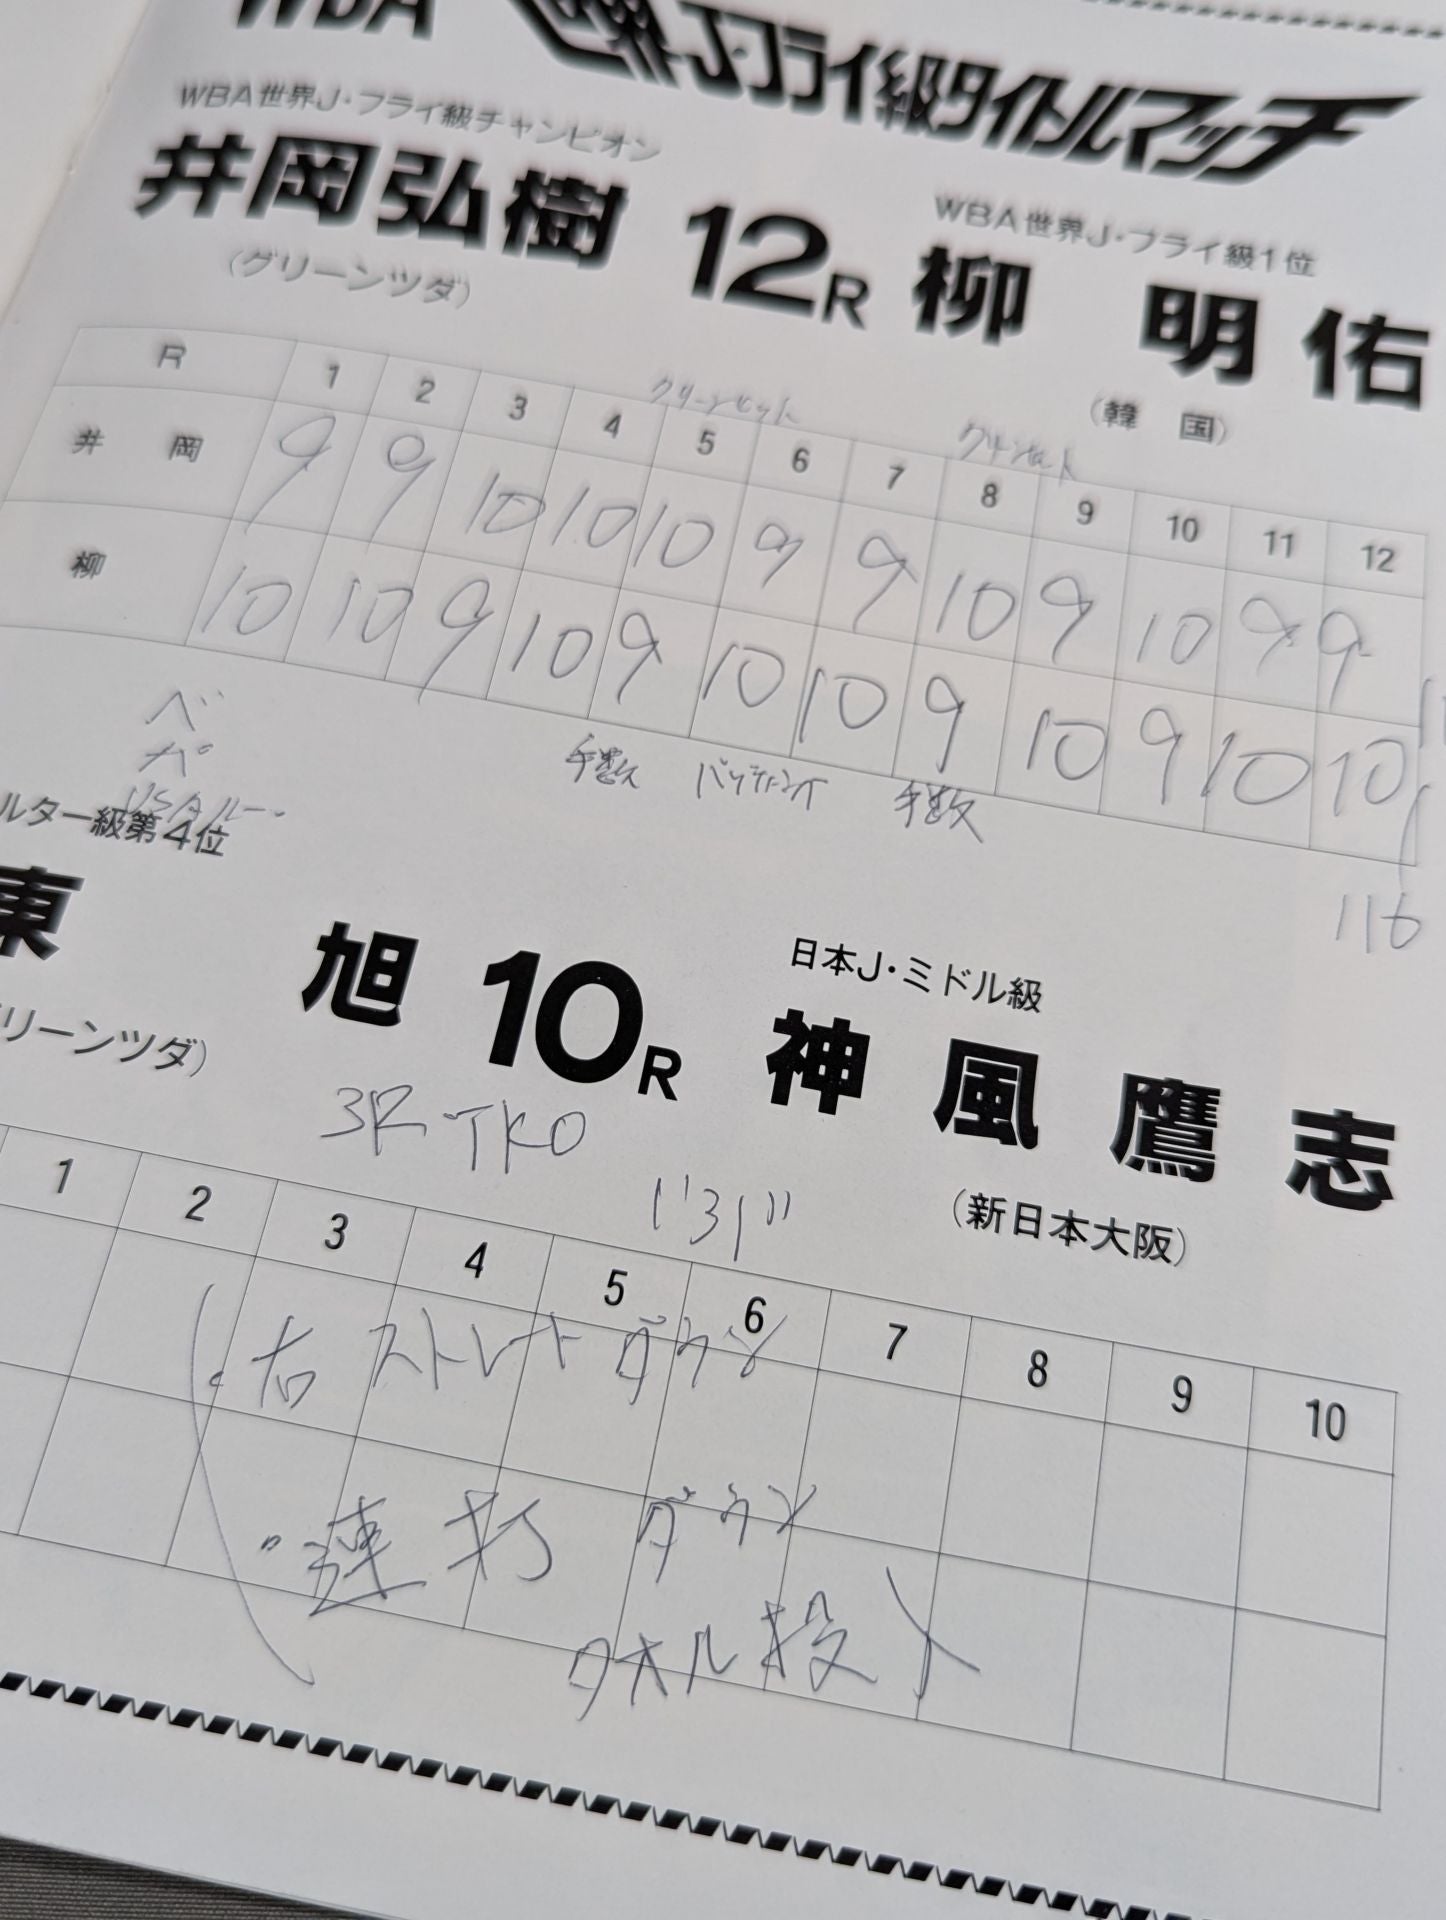 WBA 世界J・フライ級タイトルマッチ
WBA世界J・フライ級チャンピオン
井岡弘樹 12R 柳 明 佑
WBA世界J・フライ級1位
(グリーンツダ)
(韓 国)
クリーンヒット
R 1 2 3 4 5 6 7 8 9 10 11 12
井 岡 9 9 10 10 10 9 9 10 9 10 9 9
柳 10 10 9 10 9 10 10 9 10 9 10 10
手数 バッティング 手数
116
ルター級第4位
東 旭 10R 神 風 鷹 志
日本J・ミドル級
リーンツダ)
(新日本大阪)
3R TKO
1'31"
1 2 3 4 5 6 7 8 9 10
・右ストレートダウン
・連打 ダウン
タオル投入